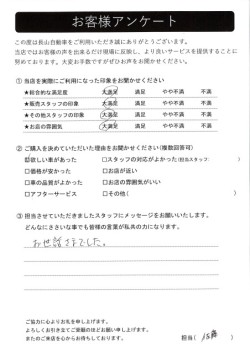 お客様アンケート
この度は長山自動車をご利用いただき誠にありがとうございます。
当店ではお客様の声を出来るだけ現場に反映し、より良いサービスを提供することに
努めております。大変お手数ですがぜひお声をお聞かせください。
① 当店を実際にご利用になった印象をお聞かせください
★総合的な満足度 大満足 満足 やや不満 不満
★販売スタッフの印象 大満足 満足 やや不満 不満
★その他スタッフの印象 大満足 満足 やや不満 不満
★お店の雰囲気 大満足 満足 やや不満 不満
② ご購入を決めていただいた理由をお聞かせください(複数回答可)
欲しい車があった □スタッフの対応がよかった(担当スタッフ: )
□価格が安かった □お店が近い
□車の品質がよかった □お店の雰囲気がいい
□アフターサービス □その他( )
③ 担当させていただきましたスタッフにメッセージをお願いいたします。
どんなにささいな事でも皆様の言葉が私共の力になります。
お世話さまでした。
ご協力に心よりお礼を申し上げます。
よろしくお引き立てご愛顧のほどお願い申し上げます。
またのご来店を心からお待ちしております。
担当( )